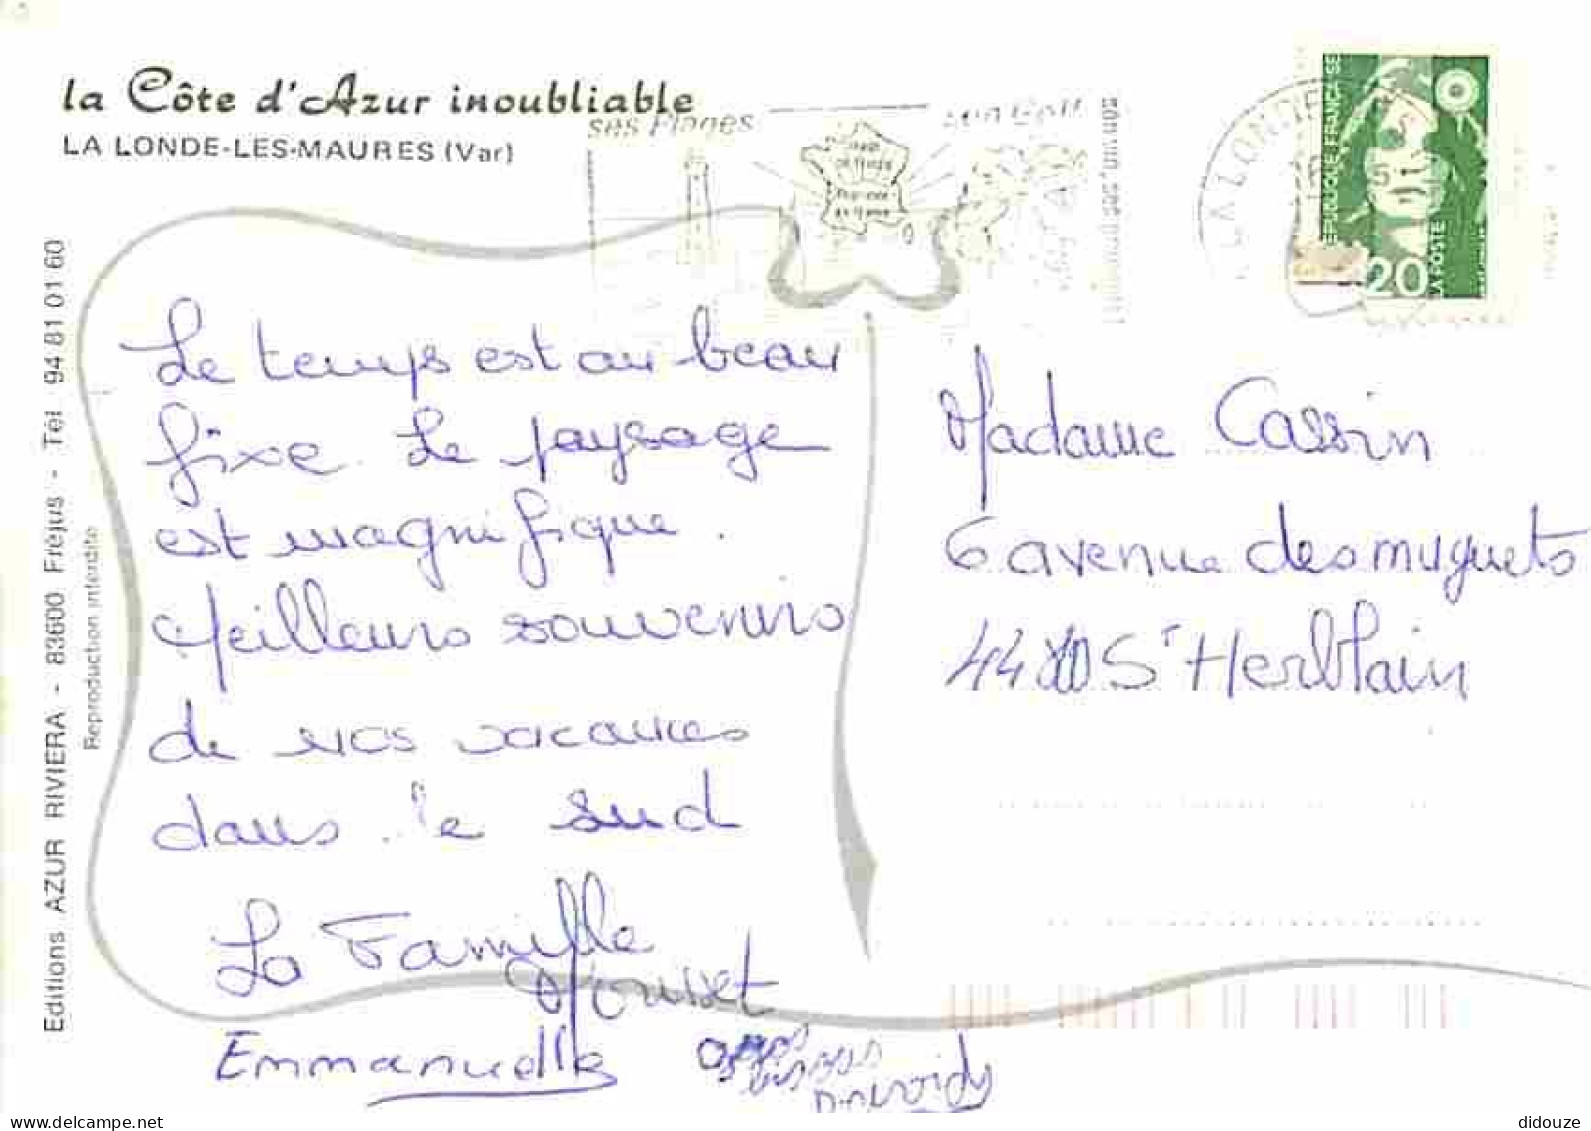 la Côte d'Azur inoubliable
LA LONDE-LES-MAURES (Var)
ses Plages
LA LONDE
REPUBLIQUE FRANÇAISE
20
LA POSTE
Editions AZUR RIVIERA - 83600 Fréjus - Tél 94 81 01 60
Reproduction interdite
Le temps est au beau
fixe. Le paysage
est magnifique.
Meilleurs souvenirs
de nos vacances
dans le sud
La Famille
Emmanuelle
Madame Cassin
6 avenue des muguets
St Herblain
www.delcampe.net
didouze